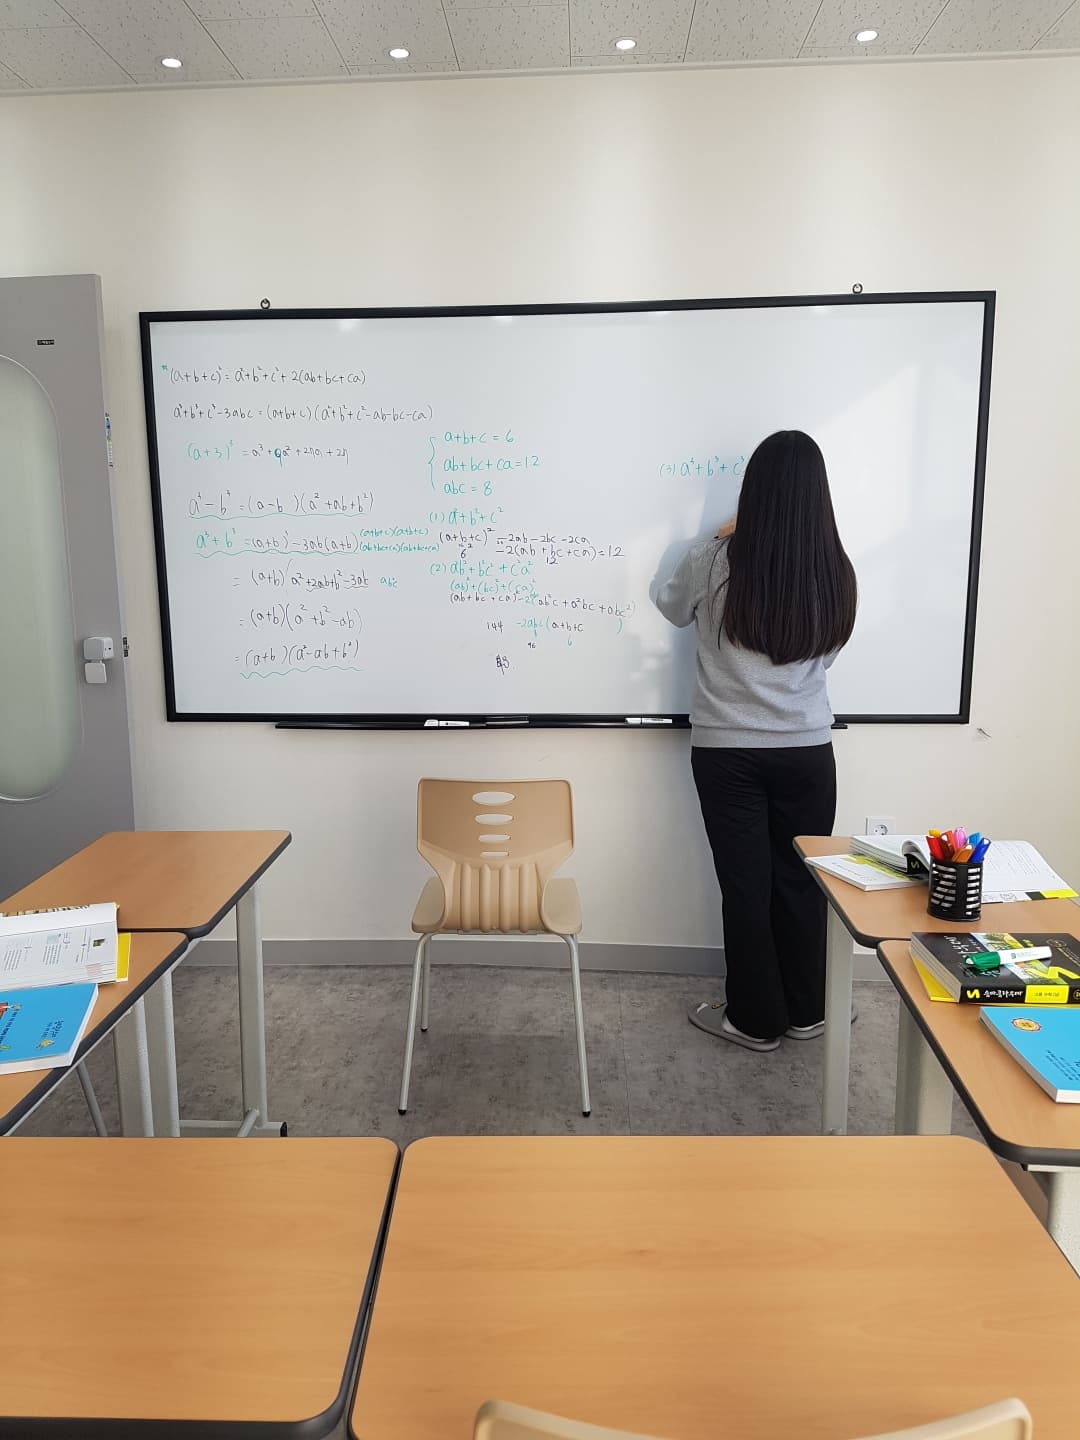 *(a+b+c)²= a²+b²+c²+2(ab+bc+ca)
a³+b³+c³-3abc=(a+b+c)(a²+b²+c²-ab-bc-ca)
(a+3)³ = a³+9a²+27a+27
a³-b³=(a-b)(a²+ab+b²)
a³+b³ =(a+b)³-3ab(a+b)
= (a+b)(a²+2ab+b²-3ab
=(a+b)(a²+b²-ab)
=(a+b)(a²-ab+b²)
(a+b+c)(a+b+c)
(ab+bc+ca)(ab+bc+ca)
abc
a+b+c = 6
ab+bc+ca=12
abc = 8
(1) a²+b²+c²
(a+b+c)² -2ab-2bc-2ca
6² -2(ab+bc+ca)=12
12
(2) a²b²+b²c²+c²a²
(ab)²+(bc)²+(ca)²
(ab+bc+ca)²-2(ab²c+a²bc+abc²)
144 -2abc(a+b+c )
96 6
48
(3) a³+b³+c³